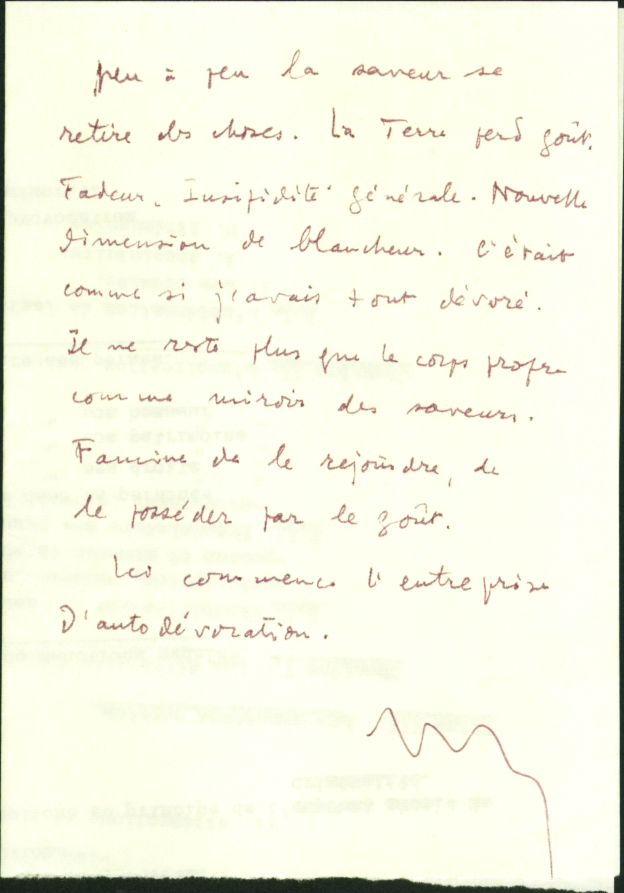 peu à peu la saveur se
retire des choses. La Terre perd goût.
Fadeur. Insipidité générale. Nouvelle
dimension de blancheur. C'était
comme si j'avais tout dévoré.
Il ne reste plus que le corps propre
comme miroir des saveurs.
Famine de le rejoindre, de
le posséder par le goût.
Ici commence l'entreprise
D'autodévoration.